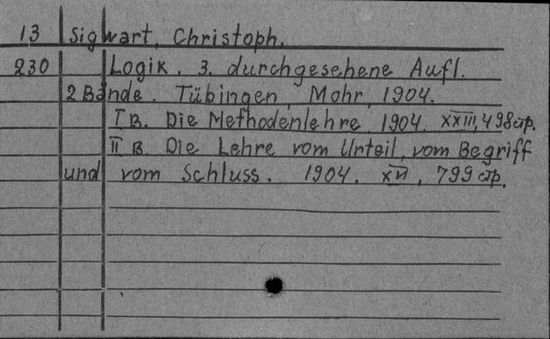 13 Sigwart, Christoph.
230 Logik. 3. durchgesehene Aufl.
2 Bände. Tübingen, Mohr, 1904.
I B. Die Methodenlehre 1904. XXIII, 498 стр.
II B. Die Lehre vom Urteil, vom Begriff
und vom Schluss. 1904. XVI, 799 стр.